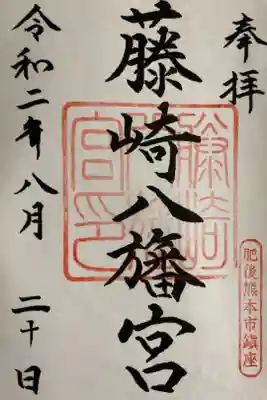 奉拝
藤崎八旛宮
令和二年八月二十日
肥後熊本市鎮座